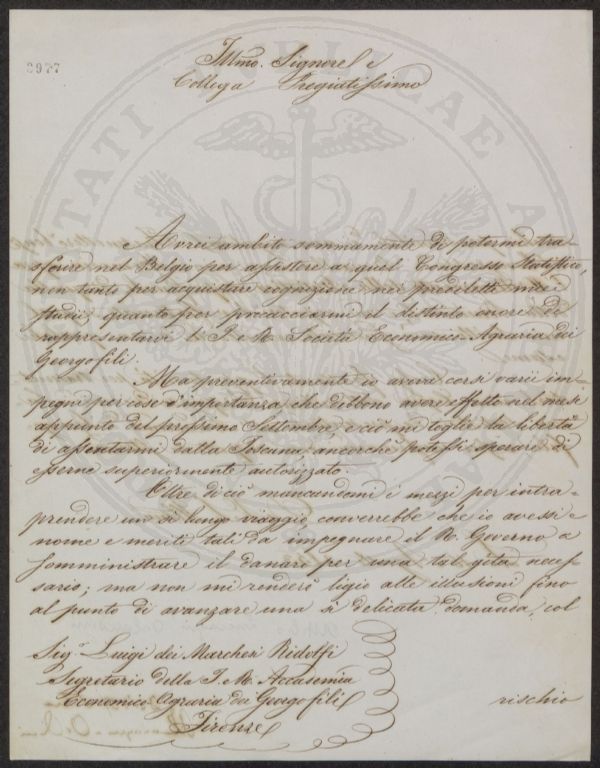 2977
Illmo. Signore e
Collega Pregiatissimo
Avrei ambito sommamente di potermi tra-
sferire nel Belgio per assistere a quel Congresso Statistico,
non tanto per acquistare cognizione nei prediletti miei
studii, quanto per procacciarmi il distinto onore di
rappresentarvi l'I. e R. Società Economico-Agraria dei
Georgofili.
Ma preventivamente io aveva corsi varii im-
pegni per cose d'importanza che debbono avere effetto nel mese
appunto del prossimo Settembre, e ciò mi toglie la libertà
di assentarmi dalla Toscana, ancorchè potessi sperare di
esserne superiormente autorizzato.
Oltre di ciò mancandomi i mezzi per intra-
prendere un sì lungo viaggio converrebbe che io avessi
nome e meriti tali da impegnare il R. Governo a
somministrare il danaro per una tal gita neces-
sario; ma non mi renderò ligio alle illusioni fino
al punto di avanzare una sì delicata domanda, col
Sigr. Luigi dei Marchesi Ridolfi
Segretario della I. e R. Accademia
Economico-Agraria dei Georgofili
Firenze
rischio